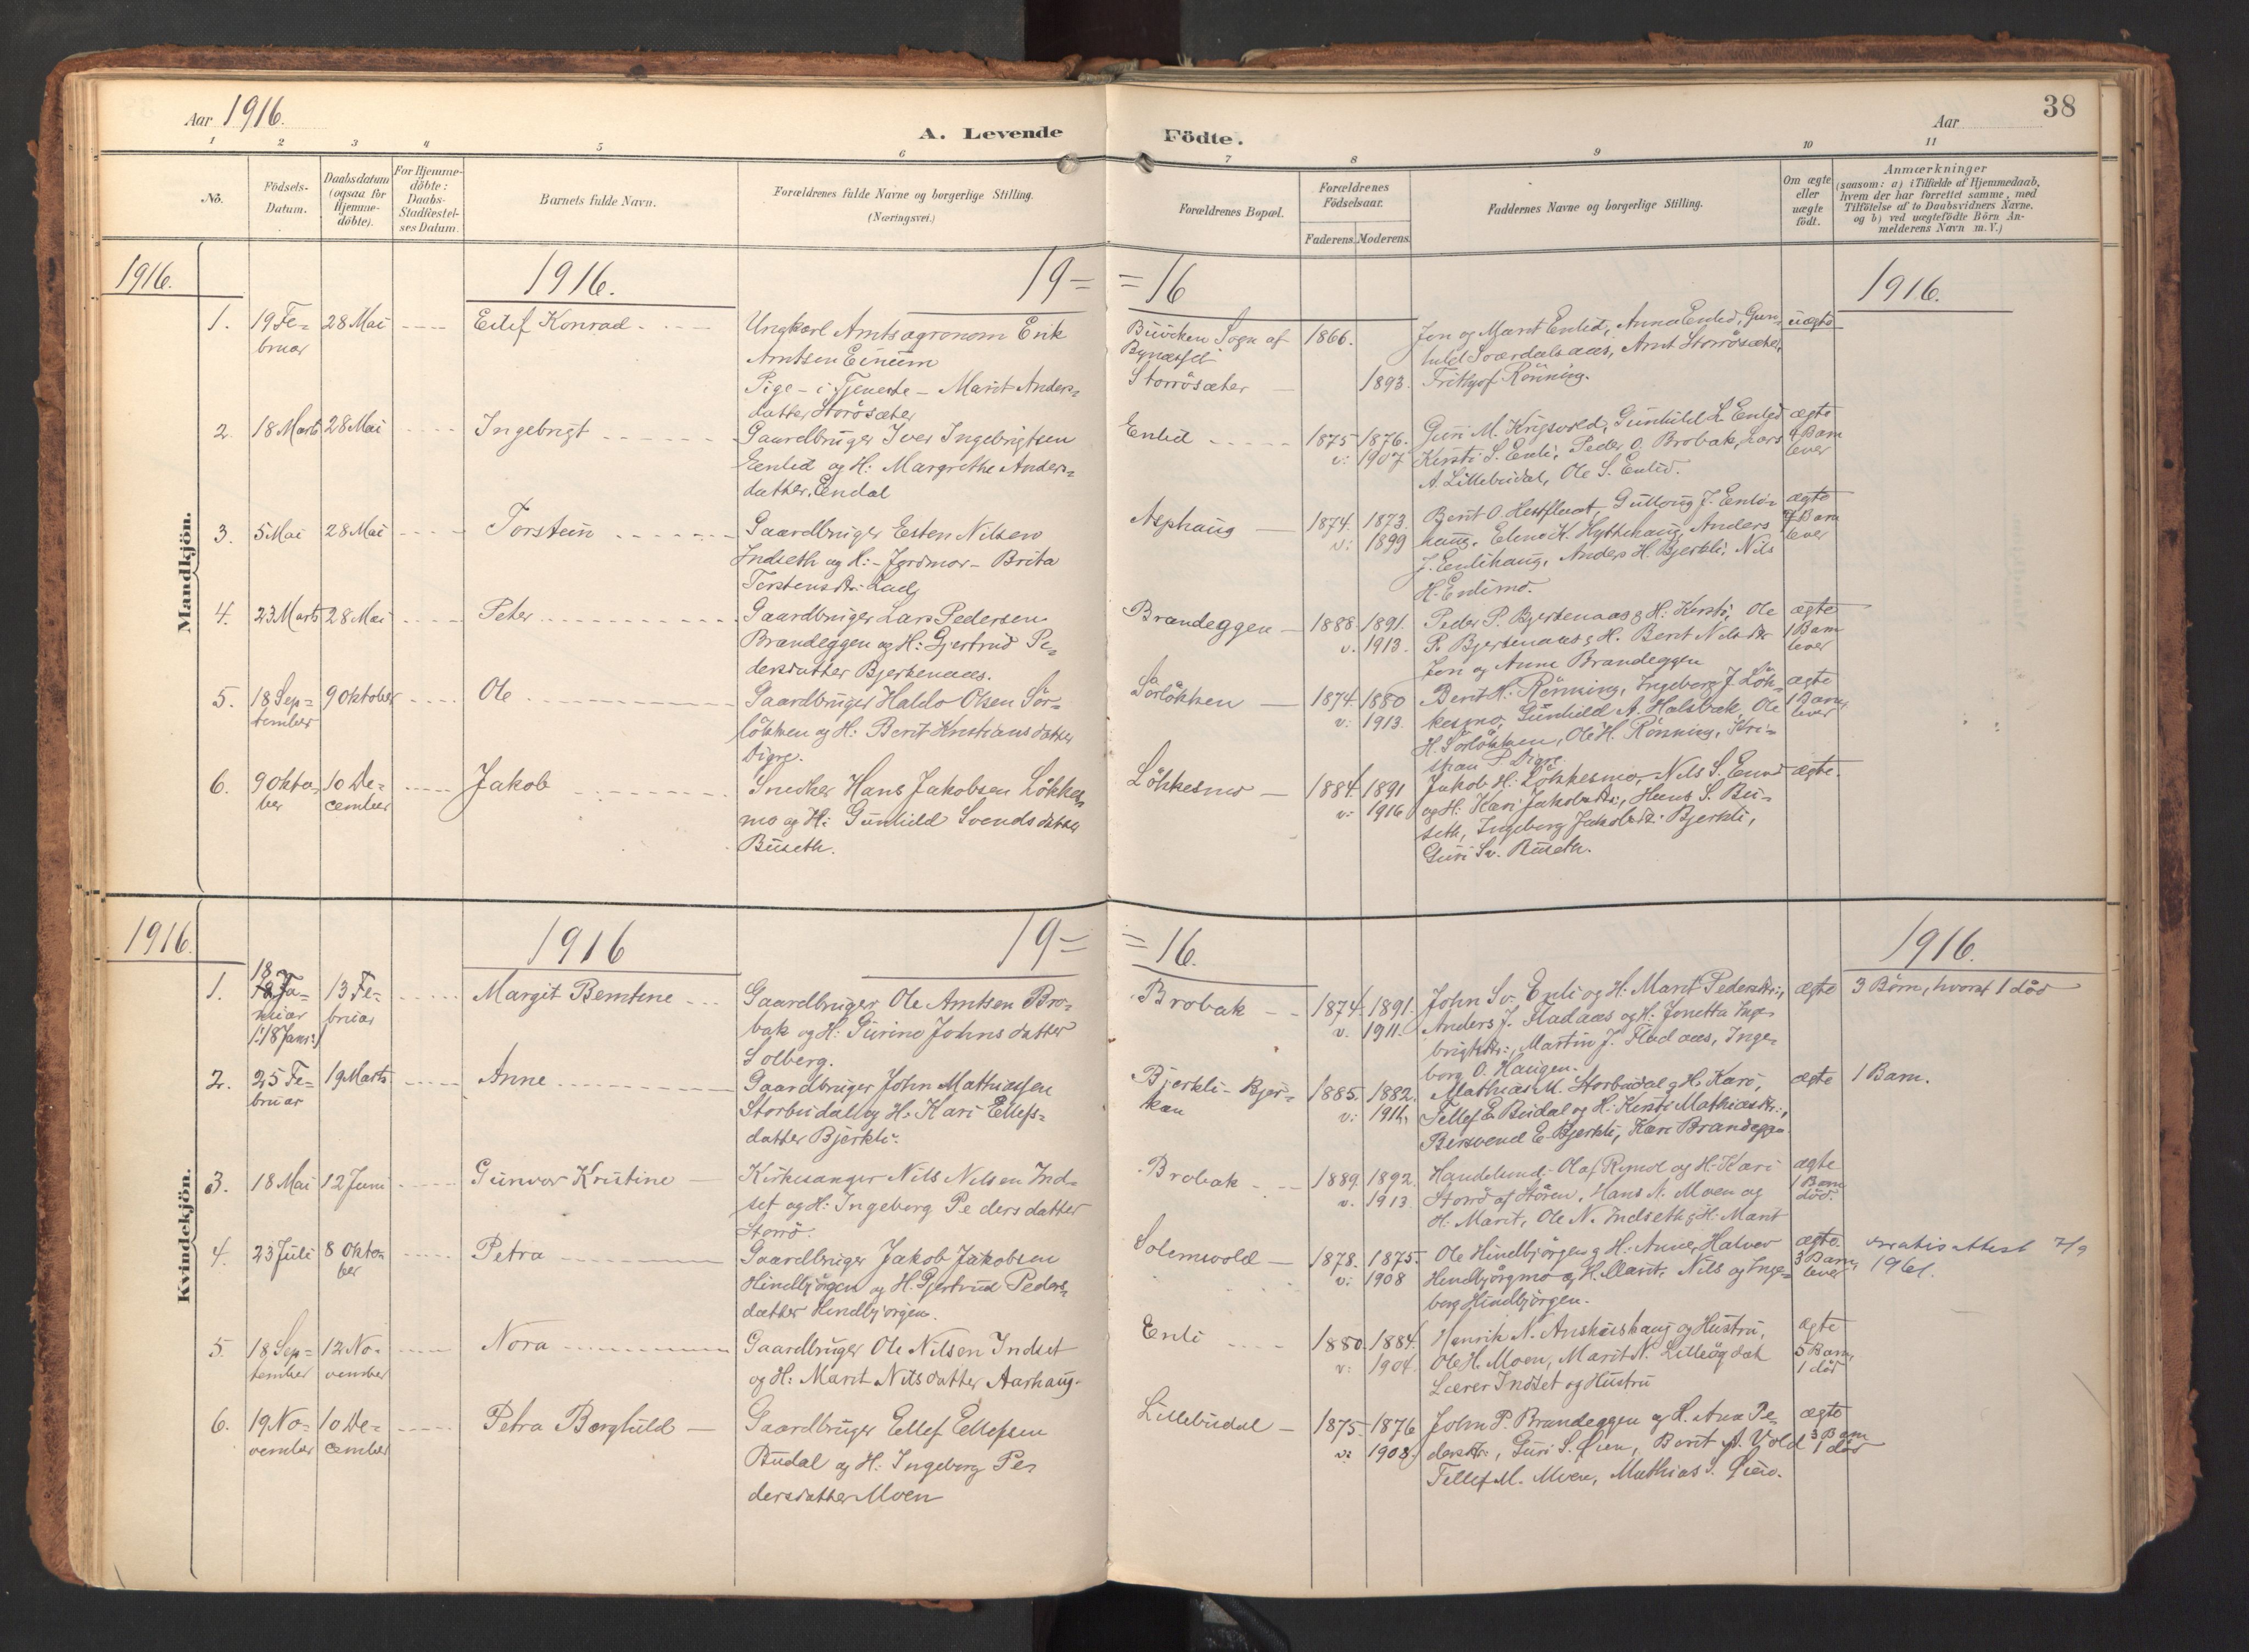 Aar 1916.
A. Levende
Födte.
Aar
38
1 2 3 4 5 6 7 8 9 10 11
No.
Födsels-
Datum.
Daabsdatum
(ogsaa for
Hjemme-
döbte).
For Hjemme-
döbte:
Daabs-
Stadfæstel-
ses Datum.
Barnets fulde Navn.
Forældrenes fulde Navne og borgerlige Stilling.
(Næringsvei.)
Forældrenes Bopæl.
Forældrenes
Födselsaar.
Faderens. Moderens.
Faddernes Navne og borgerlige Stilling.
Om ægte
eller
uægte
födt.
Anmærkninger
(saasom: a) i Tilfælde af Hjemmedaab,
hvem der har forrettet samme, med
Tilföielse af to Daabsvidners Navne,
og b) ved uægtefödte Börn An-
melderens Navn m. V.)
1916. 1916. 19= =16 1916.
Mandkjön.
1. 19 Fe-
bruar
28 Mai
Eilef Konrad
Ungkarl Amtsagronom Erik
Arntsen Einum
Pige - i Tjeneste - Marit Anders-
datter Storrösæter
Buviken Sogn af
Bynæsset
Storrösæter
1866.
1893.
Jon og Marit Enlid, Anna Enlid, Gun-
hild Sværdalsaas, Arnt Storrösæter,
Frithjof Rönning.
uægte
2. 18 Marts 28 Mai
Ingebrigt
Gaardbruger Iver Ingebrigtsen
Eenlid og H: Margrethe Anders-
datter Endal
Enlid
1875 1876.
v: 1907
Guri M. Krigsvold, Gunhild L. Enlid
Kirsti S. Enli, Peder O. Brobak, Lars
A. Lillebudal, Ole S. Enlid.
ægte
4 Barn
lever
3. 5 Mai 28 Mai
Torstein
Gaardbruger Esten Nilsen
Indseth og H: - Jordmor - Brita
Torstensdtr: Lad,
Asphaug
1874. 1873.
v: 1899
Berit O. Hestflaat, Gullaug J. Enli-
haug, Elen K. Hyttehaug, Anders
J. Enlihaug, Anders H. Bjerkli, Nils
H. Enlimo.
ægte
7 Barn
lever
4. 23 Marts 28 Mai
Peter
Gaardbruger Lars Pedersen
Brandeggen og H: Gjertrud Pe-
dersdatter Bjerkenaas.
Brandeggen
1888. 1891.
v. 1913.
Peder P. Bjerkenaas & H: Kirsti, Ole
P. Bjerkenaas & H. Berit Nilsdtr
Jon og Anne Brandeggen
ægte
1 Barn
lever
5. 18 Sep-
tember
9 Oktober
Ole
Gaardbruger Haldo Olsen Sör-
lökken og H: Berit Kristiansdatter
Digre.
Sörlökken
1874. 1880
v: 1913.
Berit H. Rönning, Ingeborg J. Lök-
kesmo, Gunhild A. Halsbak, Ole
H. Sörlökken, Ole H. Rönning, Kri-
stian P. Digre
ægte
1 Barn,
lever
6. 9 Okto-
ber
10 De-
cember
Jakob
Snedker Hans Jakobsen Lökkes
mo og H: Gunhild Svendsdatter
Buseth.
Lökkesmo
1884. 1891
v: 1916
Jakob H. Lökkesmo, Nils S. Enlid
og H: Kari Jakobsdtr:, Hans S. Bu-
seth, Ingeborg Jakobsdtr: Bjerkli,
Guri Sv. Buseth.
ægte.
1916. 1916 19= =16. 1916.
Kvindekjön.
1. 18
Ja-
nuar
/: 18 Janr:/
13 Fe-
bruar
Margit Berntine
Gaardbruger Ole Arntsen Bro-
bak og H: Gurine Johnsdatter
Solberg.
Brobak
1874. 1891.
v. 1911.
John Sv. Enli og H: Marit Pedersdtr:,
Anders J. Fladaas og H: Jonetta Inge-
brigtsdtr:, Martin J. Fladaas, Inge-
borg O. Haugen.
ægte
3 Börn, hvoraf 1 död
2. 25 Fe-
bruar
19 Marts
Anne
Gaardbruger John Mathiassen
Storbudal og H: Kari Ellefs-
datter Bjerkli.
Bjerkli-Bjer-
kan
1885. 1882.
v: 1914.
Mathias M. Storbudal & H: Kari,
Tellef E Budal og H: Kirsti Mathiasdtr:,
Bersvend E. Bjerkli, Kari Brandeggen.
ægte
1 Barn.
3. 18 Mai 12 Juni
Gunvor Kristine
Kirkesanger Nils Nilsen Ind-
set og H: Ingeborg Pedersdatter
Storrö.
Brobak
1889. 1892.
v. 1913.
Handelsmd. Olaf Rynd og H: Kari
Storrö af Stören, Hans N. Moen og
H. Marit, Ole N. Indseth & H: Marit
ægte
1 Barn
död.
4. 23 Juli 8 Okto-
ber
Petra
Gaardbruger Jakob Jakobsen
Hindbjörgen og H. Gjertrud Peders-
datter Hindbjörgen.
Solemsvold
1878. 1875.
v: 1908
Ole Hindbjörgen & H: Anne, Halvor
Hindbjörgmo og H. Marit, Nils og Inge-
borg Hindbjörgen.
ægte.
3 Barn,
lever
gratis attest 7/9
1961.
5. 18 Sep-
tember
12 No-
vember
Nora
Gaardbruger Ole Nilsen Indset
og H: Marit Nilsdatter Aarhaug.
Enli
1880. 1884.
v: 1904.
Henrik N. Aunshaug og Hustru,
Ole H. Moen, Marit N.
Lærer Indset og Hustru
ægte
5 Barn,
1 död
6. 19 No-
vember
10 De-
cember
Petra Borghild
Gaardbruger Ellef Ellefsen
Budal og H: Ingeborg Pe-
dersdatter Moen
Lillebudal
1875. 1876
v: 1908.
John P. Brandeggen og H. Ane Pe-
dersdtr:, Guri S. Öien, Berit A. Vold
Tellef M. Moen, Mathias S. Öien.
ægte
3 Barn
1 död